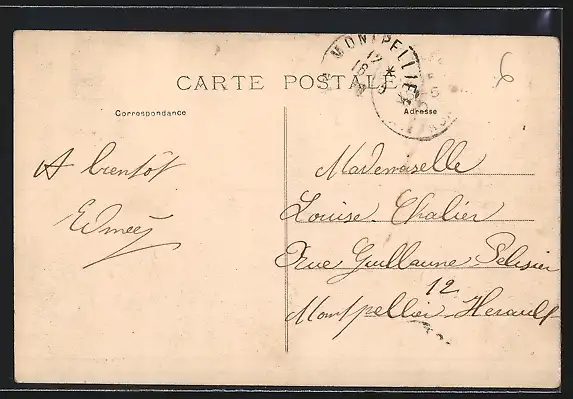 MONTPELLIER
CARTE POSTALE
Correspondance
Adresse
A bientôt
Edmée
Mademoiselle
Louise Chalier
Rue Guillaume Pelissier
12
Montpellier Herault
6